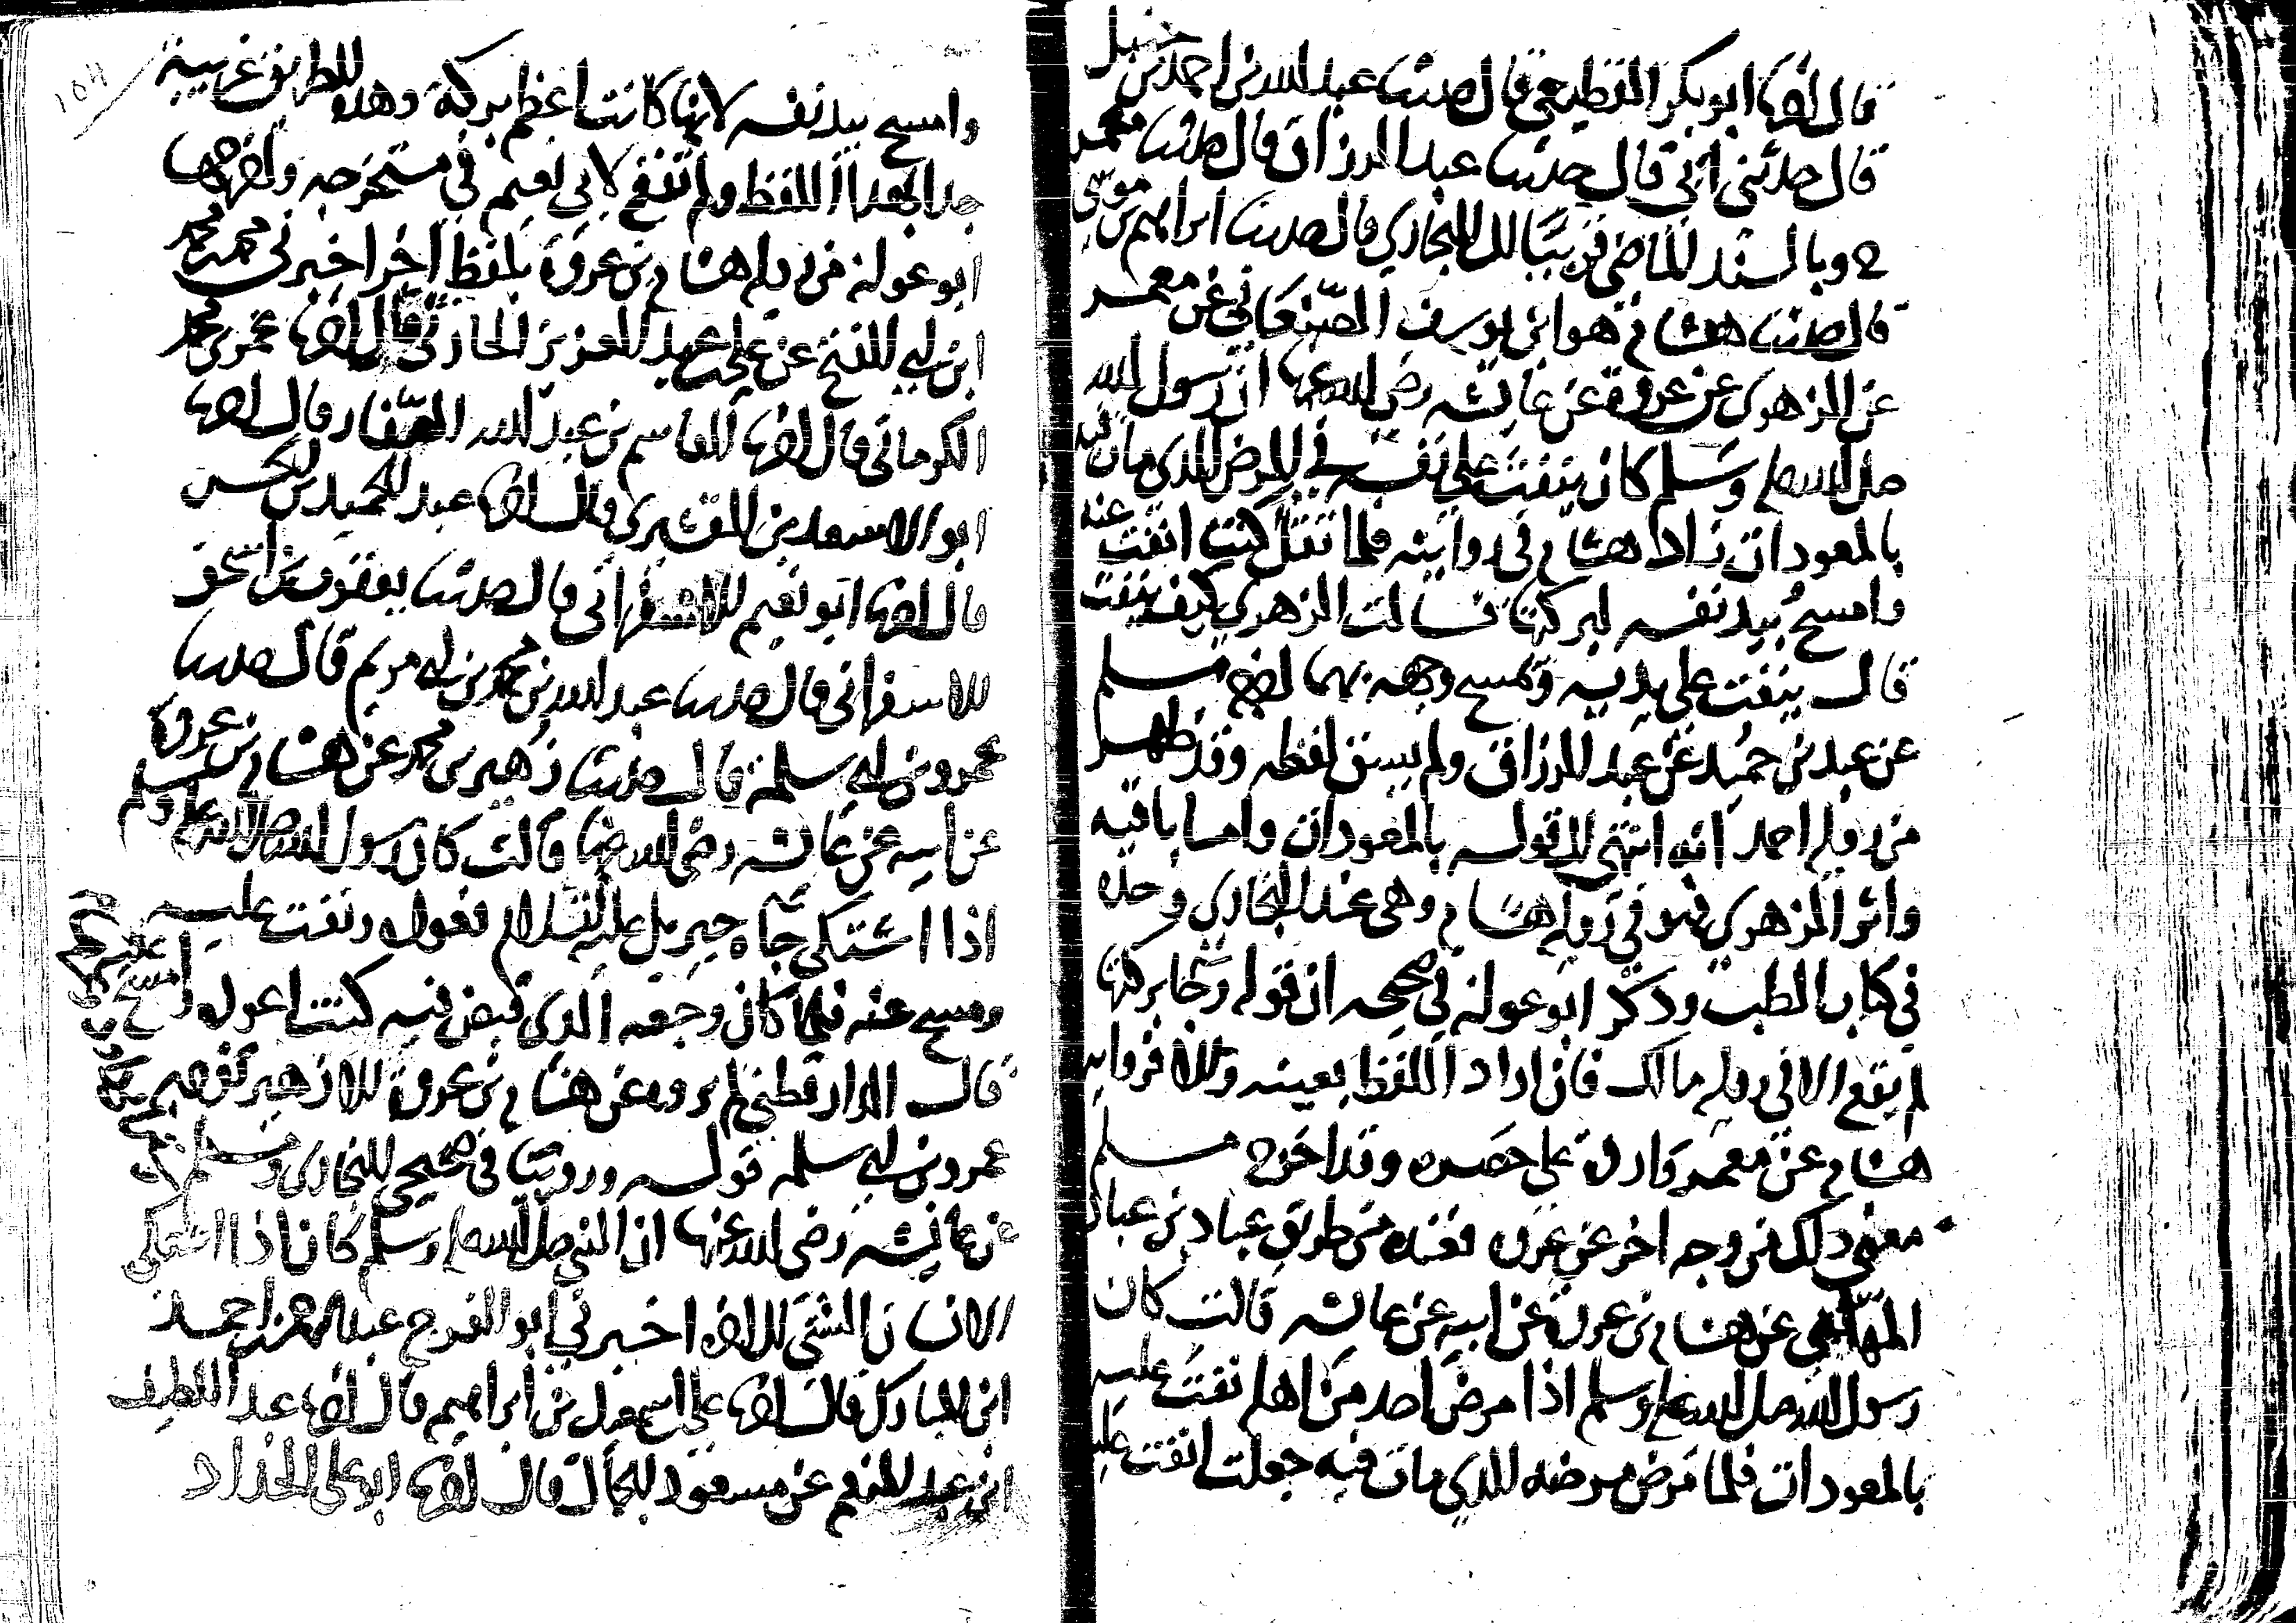 قال اخبرنا ابو بكر القطيعي قال حدثنا عبد الله بن احمد بن حنبل
قال حدثني ابي قال حدثنا عبد الرزاق قال حدثنا معمر
ح وبالسند الماضي قريبا الى البخاري قال حدثنا ابراهيم بن موسى
قال حدثنا هشام هو ابن يوسف الصنعاني عن معمر
عن الزهري عن عروة عن عائشة رضي الله عنها ان رسول الله
صلى الله عليه وسلم كان ينفث على نفسه في المرض الذي مات فيه
بالمعوذات زاد هشام في روايته فلما ثقل كنت انفث عنه
وامسح بيد نفسه لبركتها فسالت الزهري كيف ينفث
قال ينفث على يديه ويمسح وجهه بهما اخرجه مسلم
عن عبد بن حميد عن عبد الرزاق ولم يسق لفظه وقد ظهر
من رواية احمد انه انتهى الى قوله بالمعوذات واما باقيه
واثر الزهري فهو في رواية هشام وهي عند البخاري وحده
في كتاب الطب وذكر ابو عوانة في صحيحه ان قوله رجا بركتها
لم يقع الا في رواية مالك فان اراد اللفظ بعينه والا فرواية
هشام عن معمر واردة على حصره وقد اخرج مسلم
معنى ذلك من وجه اخر عن عروة فعنده من طريق عباد بن عباد
المهلبي عن هشام بن عروة عن ابيه عن عائشة قالت كان
رسول الله صلى الله عليه وسلم اذا مرض احد من اهله نفث عليه
بالمعوذات فلما مرض مرضه الذي مات فيه جعلت انفث عليه
١٠٤
وامسح بيد نفسه لانها كانت اعظم بركة وهذه الطريق غريبة
جدا بهذا اللفظ ولم تقع لابي نعيم في مستخرجه واخرجها
ابو عوانة من رواية هشام بن عروة بلفظ اخر اخبرني محمد بن محمد
ابن ابي الفتح عن علي بن عبد العزيز الحارثي قال اخبرنا عمر بن محمد
الكرماني قال اخبرنا القاسم بن عبد الله الصفار قال اخبرنا
ابو الاسعد بن القشيري قال اخبرنا عبد الحميد بن الحسن
قال اخبرنا ابو نعيم الاسفرايني قال حدثنا يعقوب بن اسحق
الاسفرايني قال حدثنا عبد الله بن محمد بن ابي مريم قال حدثنا
عمرو بن ابي سلمة قال حدثنا زهير بن محمد عن هشام بن عروة
عن ابيه عن عائشة رضي الله عنها قالت كان رسول الله صلى الله عليه وسلم
اذا اشتكى جاه جبريل عليه السلام نعوذه ونفث عليه
ومسح عنه فلما كان وجعه الذي قبض فيه كنت اعوذه وامسح
قال الدارقطني لم يروه عن هشام بن عروة الا زهير تفرد به
عمرو بن ابي سلمة قوله وروينا في صحيحي البخاري ومسلم
عن عائشة رضي الله عنها ان النبي صلى الله عليه وسلم كان اذا اشتكى
الانسان الشيء الى اخره اخبرني ابو الفرج عبد الرحمن بن احمد
ابن المبارك قال اخبرنا علي بن اسمعيل بن ابراهيم قال اخبرنا عبد اللطيف
ابن عبد المنعم عن مسعود الجمال قال اخبرنا ابو علي الحداد